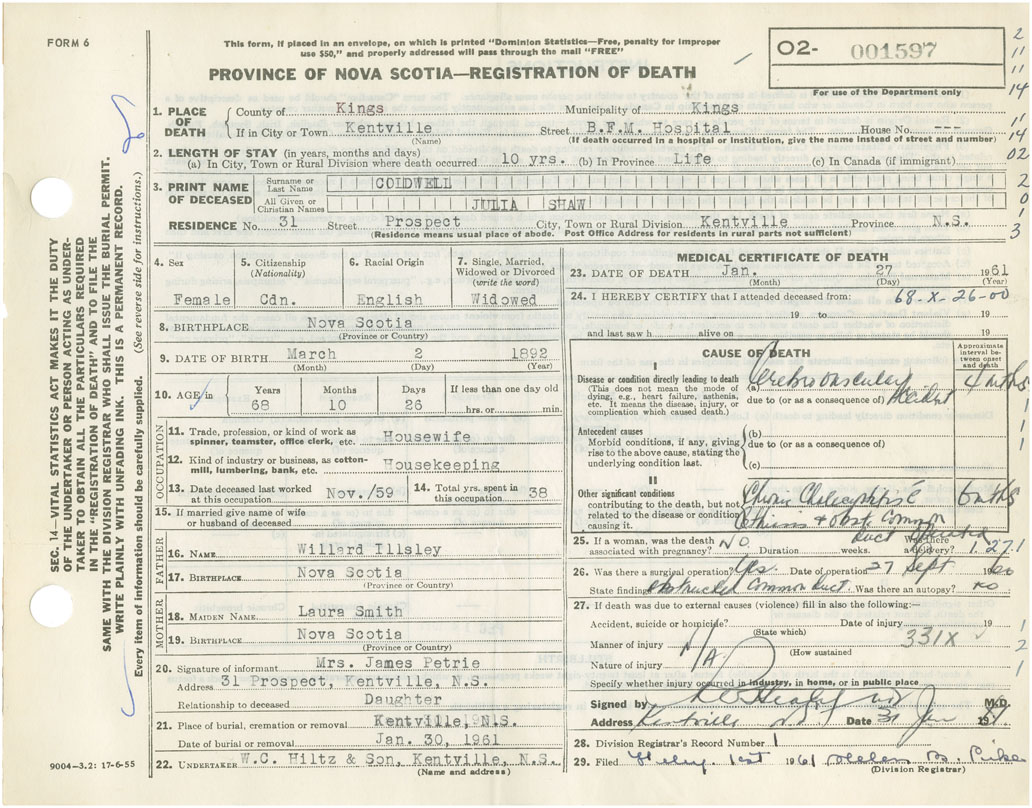 FORM 6
This form, if placed in an envelope, on which is printed "Dominion Statistics—Free, penalty for improper
use $50," and properly addressed will pass through the mail "FREE"
O2- 001597
For use of the Department only
PROVINCE OF NOVA SCOTIA—REGISTRATION OF DEATH
1. PLACE OF DEATH
County of Kings Municipality of Kings
If in City or Town Kentville Street B.F.M. Hospital House No. ---
(Name) (If death occurred in a hospital or institution, give the name instead of street and number)
2. LENGTH OF STAY (in years, months and days)
(a) In City, Town or Rural Division where death occurred 10 yrs. (b) In Province Life (c) In Canada (if immigrant)
3. PRINT NAME OF DECEASED
Surname or Last Name COLDWELL
All Given or Christian Names JULIA SHAW
RESIDENCE No. 31 Street Prospect City, Town or Rural Division Kentville Province N.S.
(Residence means usual place of abode. Post Office Address for residents in rural parts not sufficient)
4. Sex
Female
5. Citizenship
(Nationality)
Cdn.
6. Racial Origin
English
7. Single, Married,
Widowed or Divorced
(write the word)
Widowed
8. BIRTHPLACE Nova Scotia
(Province or Country)
9. DATE OF BIRTH March 2 1892
(Month) (Day) (Year)
10. AGE
Years Months Days If less than one day old
68 10 26 hrs. or min.
OCCUPATION
11. Trade, profession or kind of work as
spinner, teamster, office clerk, etc. Housewife
12. Kind of industry or business, as cotton-
mill, lumbering, bank, etc. Housekeeping
13. Date deceased last worked
at this occupation Nov./59
14. Total yrs. spent in
this occupation 38
15. If married give name of wife
or husband of deceased
FATHER
16. NAME Willard Illsley
17. BIRTHPLACE Nova Scotia
(Province or Country)
MOTHER
18. MAIDEN NAME Laura Smith
19. BIRTHPLACE Nova Scotia
(Province or Country)
20. Signature of informant Mrs. James Petrie
Address 31 Prospect, Kentville, N.S.
Relationship to deceased Daughter
21. Place of burial, cremation or removal Kentville, N.S.
Date of burial or removal Jan. 30, 1961
22. UNDERTAKER W.C. Hiltz & Son, Kentville, N.S.
(Name and address)
MEDICAL CERTIFICATE OF DEATH
23. DATE OF DEATH Jan. 27 1961
(Month) (Day) (Year)
24. I HEREBY CERTIFY that I attended deceased from: 68-X-26-00
19 to 19
and last saw h alive on 19
CAUSE OF DEATH
Approximate
interval be-
tween onset
and death
I
Disease or condition directly leading to death
(This does not mean the mode of
dying, e.g., heart failure, asthenia,
etc. It means the disease, injury, or
complication which caused death.)
(a) Cerebrovascular
due to (or as a consequence of) Accident
4 mths
Antecedent causes
Morbid conditions, if any, giving
rise to the above cause, stating the
underlying condition last.
(b)
due to (or as a consequence of)
(c)
II
Other significant conditions
contributing to the death, but not
related to the disease or condition
causing it.
Chronic Cholecystitis &
obst. common
duct
6 mths
25. If a woman, was the death
associated with pregnancy? NO. Duration weeks. Was there
a delivery?
1.27.1
26. Was there a surgical operation? Yes. Date of operation 27 Sept 1960
State finding obstructed Common duct. Was there an autopsy? no
27. If death was due to external causes (violence) fill in also the following:—
Accident, suicide or homicide? Date of injury 19
(State which)
Manner of injury N/A 331X
(How sustained
Nature of injury
Specify whether injury occurred in industry, in home, or in public place
Signed by M.D.
Address Kentville NS Date 31 Jan 1961
28. Division Registrar's Record Number 1
29. Filed 1st 1961 Helen B. Pike
(Division Registrar)
SEC. 14—VITAL STATISTICS ACT MAKES IT THE DUTY
OF THE UNDERTAKER OR PERSON ACTING AS UNDER-
TAKER TO OBTAIN ALL THE PARTICULARS REQUIRED
IN THE "REGISTRATION OF DEATH" AND TO FILE THE
SAME WITH THE DIVISION REGISTRAR WHO SHALL ISSUE THE BURIAL PERMIT.
WRITE PLAINLY WITH UNFADING INK. THIS IS A PERMANENT RECORD.
Every item of information should be carefully supplied. (See reverse side for instructions.)
9004—3.2: 17-6-55
2
11
11
14
11
14
02
2
0
3
1
1
1
1
1
2
1